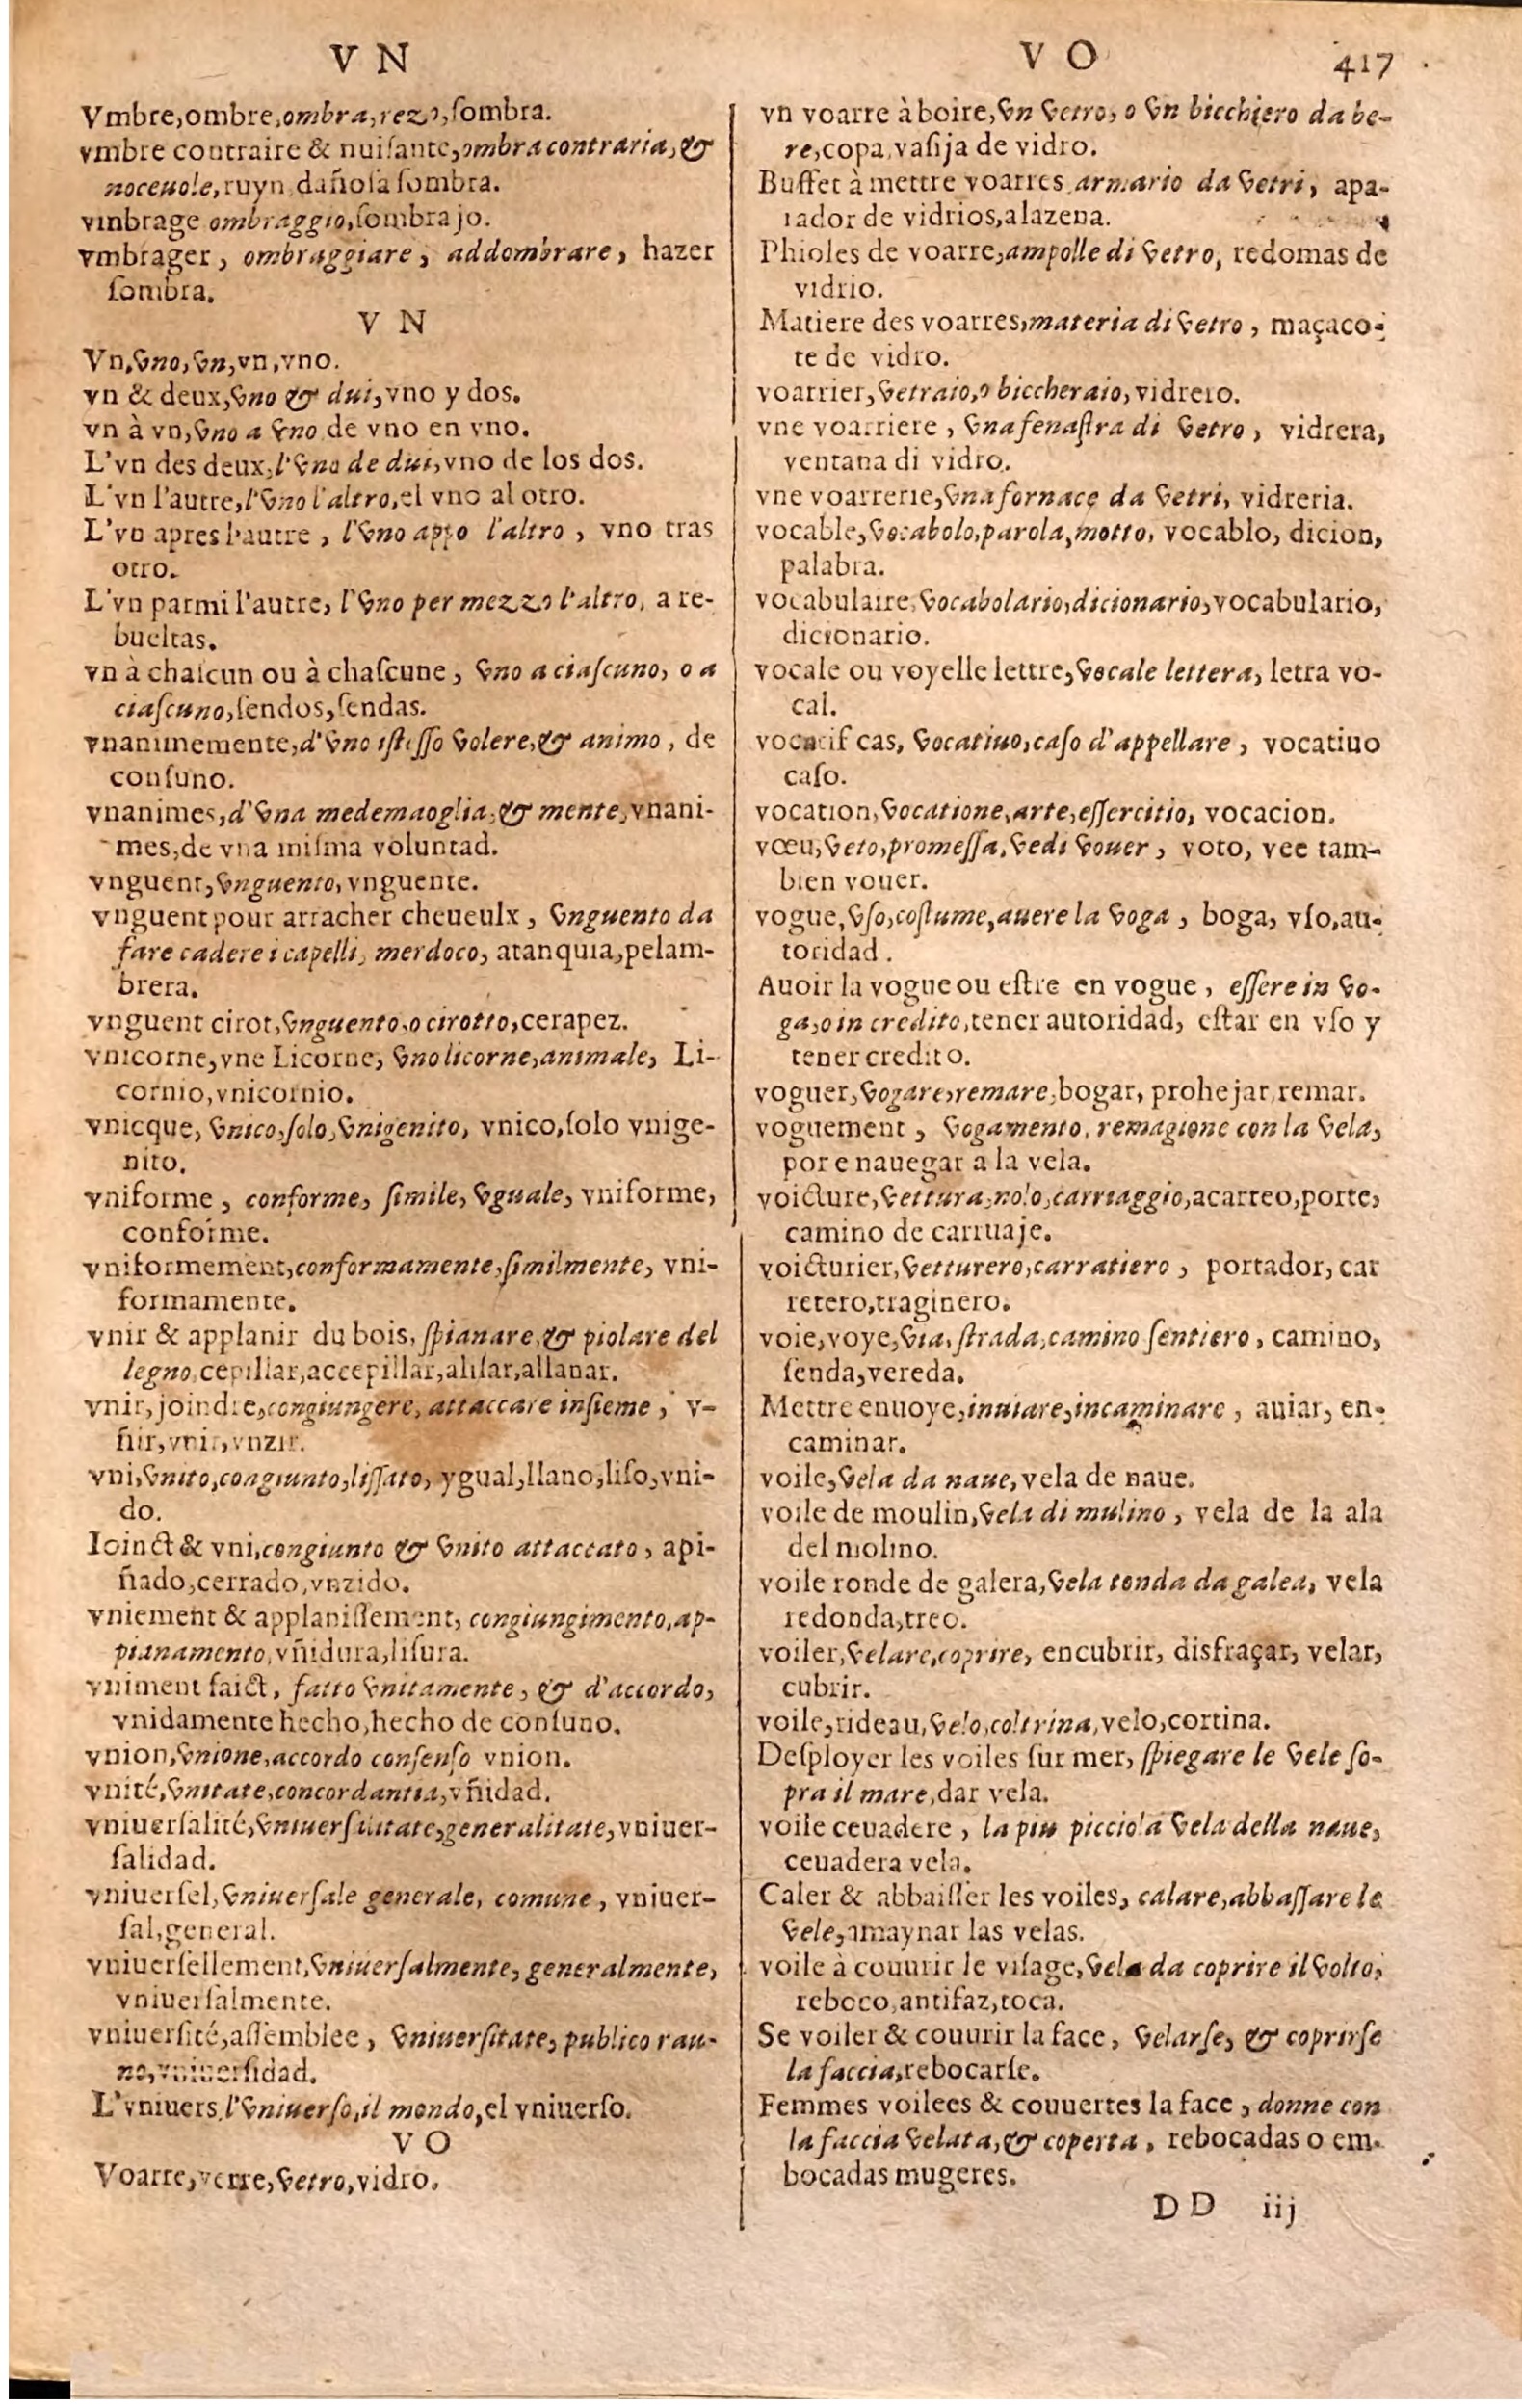 V N
Vmbre, ombre, ombra, rezo, ſombra.
vmbre contraire & nuiſante, ombra contraria, &
noceuole, ruyn, dañoſa ſombra.
vmbrage ombraggio, ſombrajo.
vmbrager, ombraggiare, addombrare, hazer
ſombra.
V N
Vn, vno, vn, vn, vno.
vn & deux, vno & dui, vno y dos.
vn à vn, vno a vno, de vno en vno.
L'vn des deux, l'vno de dui, vno de los dos.
L'vn l'autre, l'vno l'altro, el vno al otro.
L'vn apres l'autre, l'vno appo l'altro, vno tras
otro.
L'vn parmi l'autre, l'vno per mezzo l'altro, a re-
bueltas.
vn à chaſcun ou à chaſcune, vno a ciaſcuno, o a
ciaſcuno, ſendos, ſendas.
vnanimement, d'vno iſteſſo volere, & animo, de
conſuno.
vnanimes, d'vna medemaoglia, & mente, vnani-
mes, de vna miſma voluntad.
vnguent, vnguento, vnguente.
vnguent pour arracher cheueulx, vnguento da
fare cadere i capelli, merdoco, atanquia, pelam-
brera.
vnguent cirot, vnguento, o cirotto, cerapez.
vnicorne, vne Licorne, vno licorne, animale, Li-
cornio, vnicornio.
vnicque, vnico, ſolo, vnigenito, vnico, ſolo vnige-
nito.
vniforme, conforme, ſimile, vguale, vniforme,
conforme.
vniformement, conformamente, ſimilmente, vni-
formamente.
vnir & applanir du bois, ſpianare, & piolare del
legno, cepillar, accepillar, aliſar, allanar.
vnir, joindre, congiungere, attaccare inſieme, v-
ñir, vnir, vnzir.
vni, vnito, congiunto, liſſato, ygual, llano, liſo, vni-
do.
Ioinct & vni, congiunto & vnito attaccato, api-
ñado, cerrado, vnzido.
vniement & applaniſſement, congiungimento, ap-
pianamento, vñidura, liſura.
vniment faict, fatto vnitamente, & d'accordo,
vnidamente hecho, hecho de conſuno.
vnion, vnione, accordo conſenſo vnion.
vnité, vnitate, concordantia, vñidad.
vniuerſalité, vniuerſalitate, generalitate, vniuer-
ſalidad.
vniuerſel, vniuerſale generale, comune, vniuer-
ſal, general.
vniuerſellement, vniuerſalmente, generalmente,
vniuerſalmente.
vniuerſité, aſſemblee, vniuerſitate, publico rau-
no, vniuerſidad.
L'vniuers, l'vniuerſo, il mondo, el vniuerſo.
V O
Voarre, verre, vetro, vidro.
V O 417
vn voarre à boire, vn vetro, o vn bicchiero da be-
re, copa, vaſija de vidro.
Buffet à mettre voarres, armario da vetri, apa-
rador de vidrios, alazena.
Phioles de voarre, ampolle di vetro, redomas de
vidrio.
Matiere des voarres, materia di vetro, maçaco-
te de vidro.
voarrier, vetraio, o biccheraio, vidrero.
vne voarriere, vna fenaſtra di vetro, vidrera,
ventana di vidro.
vne voarrerie, vna fornace da vetri, vidreria.
vocable, vocabolo, parola, motto, vocablo, dicion,
palabra.
vocabulaire, vocabolario, dicionario, vocabulario,
dicionario.
vocale ou voyelle lettre, vocale lettera, letra vo-
cal.
vocatif cas, vocatiuo, caſo d'appellare, vocatiuo
caſo.
vocation, vocatione, arte, eſſercitio, vocacion.
vœu, veto, promeſſa, vedi vouer, voto, vee tam-
bien vouer.
vogue, vſo, coſtume, auere la voga, boga, vſo, au-
toridad.
Auoir la vogue ou eſtre en vogue, eſſere in vo-
ga, o in credito, tener autoridad, eſtar en vſo y
tener credito.
voguer, vogare, remare, bogar, prohejar, remar.
voguement, vogamento, remagione con la vela,
por e nauegar a la vela.
voicture, vettura, nolo, carriaggio, acarreo, porte,
camino de carruaje.
voicturier, vetturero, carratiero, portador, car
retero, traginero.
voie, voye, via, ſtrada, camino ſentiero, camino,
ſenda, vereda.
Mettre enuoye, inuiare, incaminare, auiar, en-
caminar.
voile, vela da naue, vela de naue.
voile de moulin, vela di mulino, vela de la ala
del molino.
voile ronde de galera, vela tonda da galea, vela
redonda, treo.
voiler, velare, coprire, encubrir, disfraçar, velar,
cubrir.
voile, rideau, velo, coltrina, velo, cortina.
Deſployer les voiles ſur mer, ſpiegare le vele ſo-
pra il mare, dar vela.
voile ceuadere, la piu picciola vela della naue,
ceuadera vela.
Caler & abbaiſſer les voiles, calare, abbaſſare le
vele, amaynar las velas.
voile à couurir le viſage, vela da coprire il volto,
reboco, antifaz, toca.
Se voiler & couurir la face, velarſe, & coprirſe
la faccia, rebocarſe.
Femmes voilees & couuertes la face, donne con
la faccia velata, & coperta, rebocadas o em-
bocadas mugeres.
DD iij